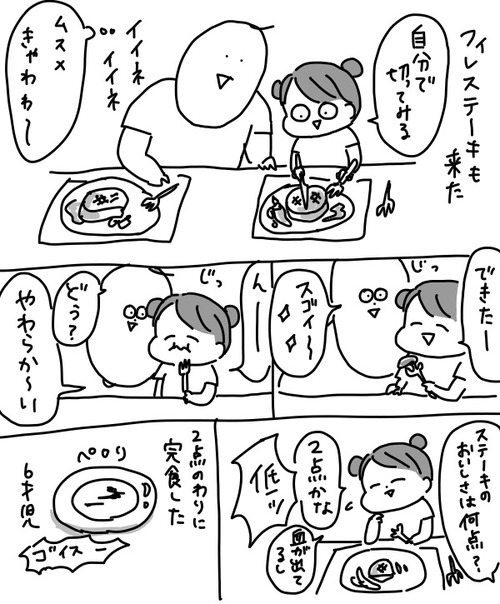 フィレステーキも
来た
自分で
切ってみる
イイネ
イイネ
ムスメ
きゃわわ〜
できたー
じっ
スゴイ〜
ん
じっ
どう?
やわらか〜い
ステーキの
おいしさは何点?
2点かな
低ーッ
血が出て
るし
2点のわりに
完食した
ペロリ
6才児
ゴイスー